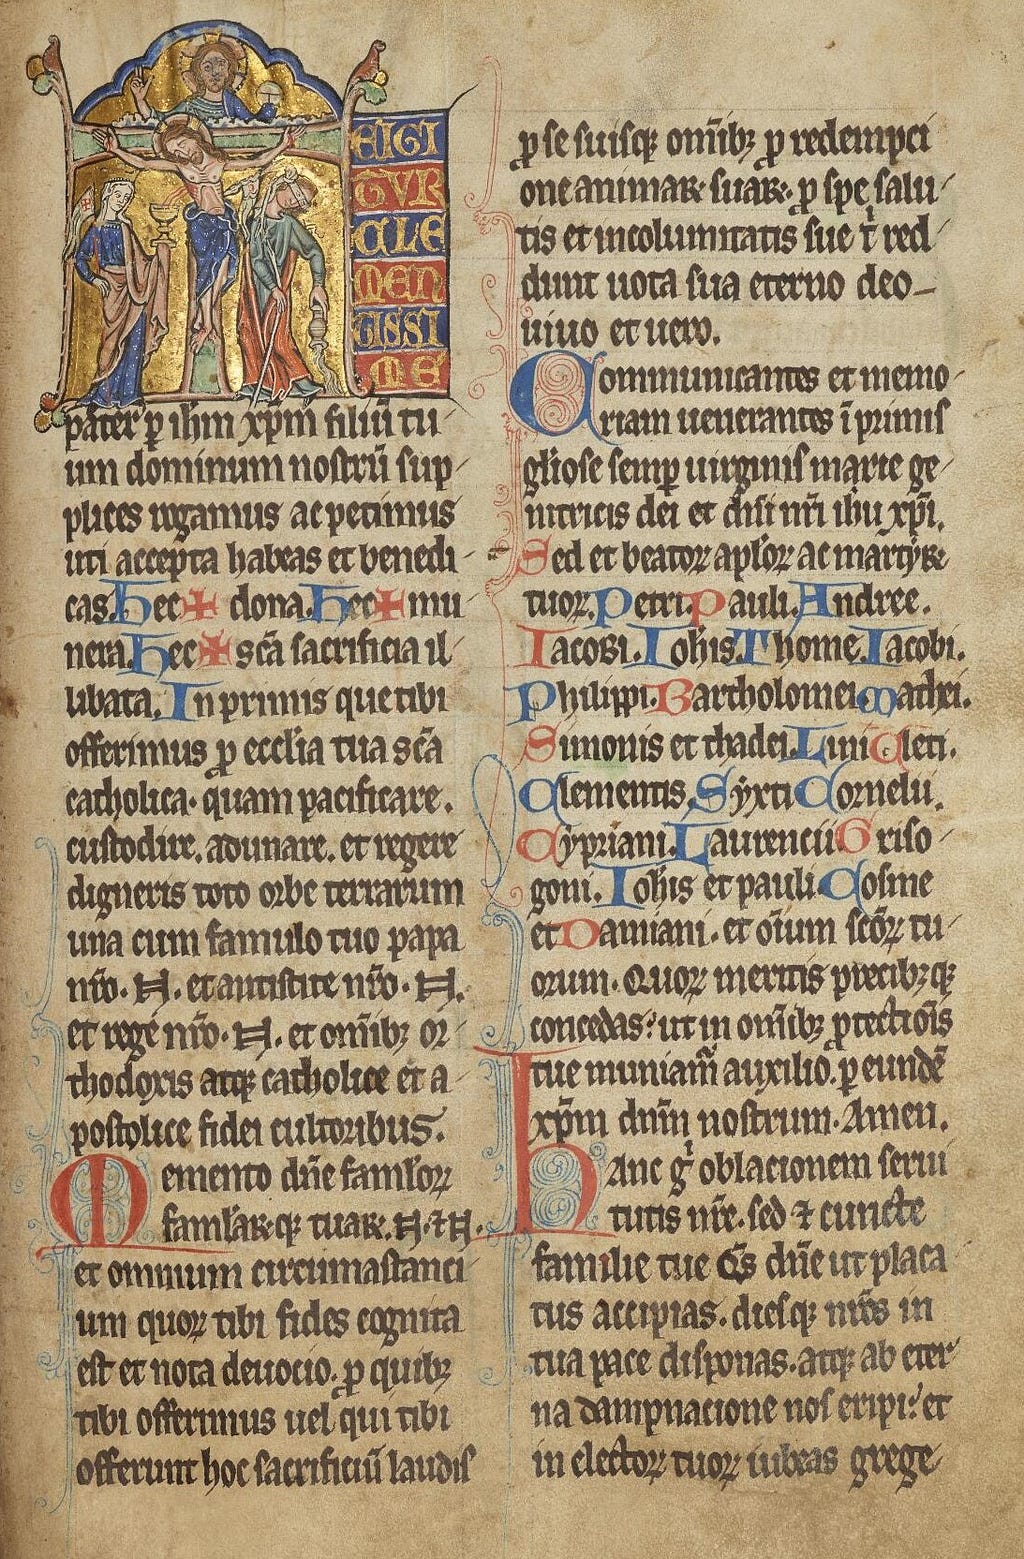 EIGI
TVR
CLE
MEN
TISSI
ME
pater ꝑ ihm xpm filiū tu
um dominum nostrū sup
plices rogamus ac petimus
uti accepta habeas et benedi
cas. hec ✠ dona. hec ✠ mu
nera. hec ✠ scā sacrificia il
libata. In primis que tibi
offerimus ꝓ ecclīa tua scā
catholica. quam pacificare.
custodire. adunare. et regere
digneris toto orbe terrarum
una cum famulo tuo papa
nrō. N. et antistite nrō. N.
et rege nrō. N. et omībꝫ or
thodoxis atqꝫ catholice et a
postolice fidei cultoribus.
Memento dn̄e famlorꝝ
famlarꝝqꝫ tuarꝝ. N. ⁊ N.
et omnium circumastanci
um quoꝝ tibi fides cognita
est et nota deuocio. ꝓ quibꝫ
tibi offerimus uel qui tibi
offerunt hoc sacrificiū laudis
ꝓ se suisqꝫ omībꝫ ꝓ redempci
one animarꝝ suarꝝ. ꝓ spe salu
tis et incolumitatis sue tͥ red
dunt uota sua eterno deo
uiuo et uero.
Communicantes et memo
riam uenerantes ī primis
gliose semꝑ uirginis marie ge
nitricis dei et dn̄i nr̄i ihu xp̄i.
Sed et beatoꝝ aplōꝝ ac martyrꝝ
tuoꝝ. Petri. Pauli. Andree.
Iacobi. Iohis. Thome. Iacobi.
Philippi. Bartholomei. Mathei.
Simonis et thadei. Lini. Cleti.
Clementis. Syxti. Cornelii.
Cypriani. Laurencii. Griso
goni. Iohis et pauli. Cosme
et Damiani. et oīum scōꝝ tu
orum. Quoꝝ meritis precibꝫqꝫ
concedas: ut in omībꝫ ꝓtectiōis
tue muniam̄ auxilio. ꝑ eundē
xp̄m dn̄m nostrum. Amen.
Hanc gͥ oblacionem serui
tutis nr̄e. sed ⁊ cuncte
familie tue q̄s dn̄e ut placa
tus accipias. diesqꝫ nr̄os in
tua pace disponas. atqꝫ ab eter
na dampnacione nos eripi: et
in electoꝝ tuoꝝ iubeas grege